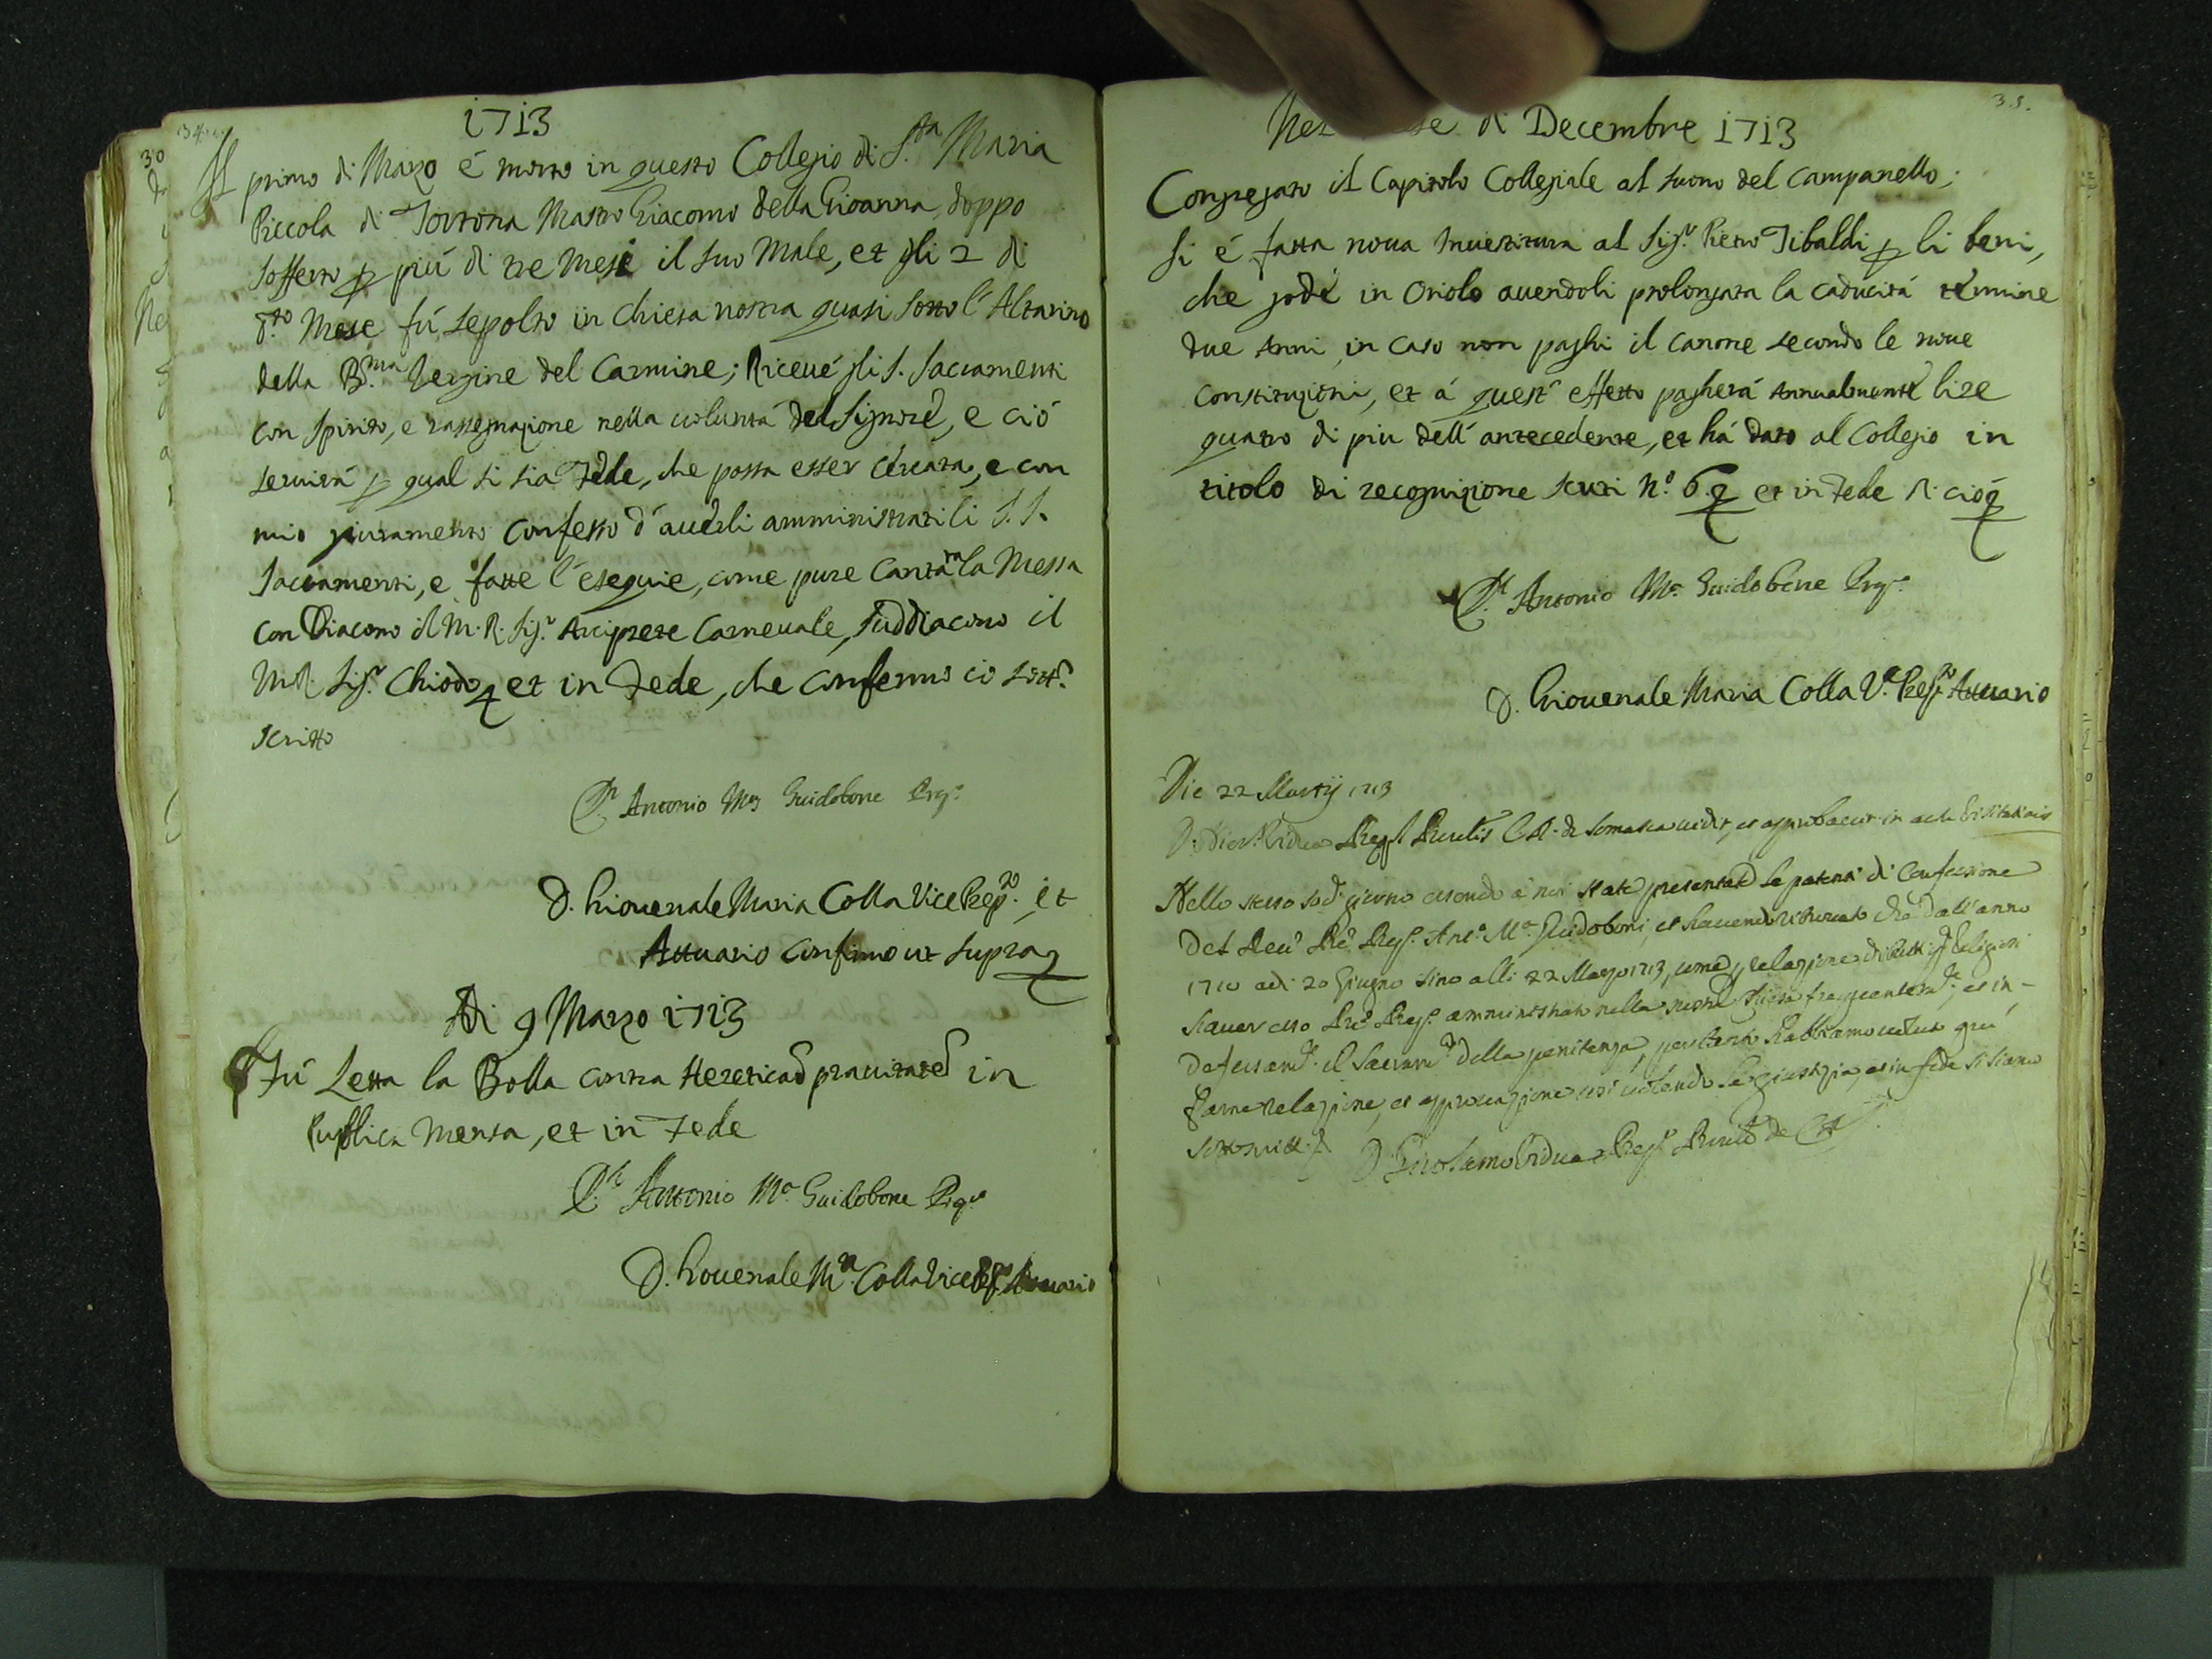 34
1713
Il primo di Marzo é morto in questo Collegio di S.ta Maria
Piccola di Tortona Mastro Giacomo della Gioanna, doppo
sofferto per piú di tre Mese il suo Male, et gli 2 di
d.to Mese fú sepolto in chiesa nostra quasi sotto l'Altarino
della B.ma Vergine del Carmine; Riceué gli S. Sacramenti
con spirito, e rassegnazione nella uoluntá del Signore, e ció
seruirá per qual si sia Fede, che possa esser cércata, e con
mio giuramento confesso d'auerli amministrati li S.S.
Sacramenti, e fatte l'esequie, come pure Cantata la Messa
con Diacono il M. R. Sig.r Arciprete Carneuale, suddiacono il
M.R. Sig.r Chiodo et in Fede, che confermo ció sott.o
scritto
D. Antonio M.a Guidobone Prep.o
D. Giouenale Maria Colla Vice Prep.to, et
Attuario confirmo ut supra
Adi 9 Marzo 1713
Fú Letta la Bolla contra Hereticad prauitated in
Publica Mensa, et in Fede
D. Antonio M.a Guidobone Prep.o
D. Giouenale M.a Colla Vice Prep.to Attuario
35.
Nel di Decembre 1713
Congregato il Capitolo Collegiale al suono del Campanello;
si é fatta noua Inuestitura al Sig.r Pietro Tibaldi per li beni,
che gode in Oriolo auendoli prolongata la caducitá termine
due Anni, in caso non paghi il canone secondo le noue
constituzioni, et á quest' effetto pagherá Annualmente lire
quatro di piu dell' antecedente, et há dato al Collegio in
titolo di recognizione scuti N.o 6 et in Fede di ció
D. Antonio M.a Guidobone Prep.o
D. Giouenale Maria Colla V.e Prep.to Attuario
Die 22 Martij 1713
Prep.s Prou.lis C.R. de Somasca uidit, et approbauit in actu Visitationis
Nello stesso sod.o giorno essendo á noi state presentate le patenti di Confessione
Del Reu.o P.re Prep.o Ant.o M.a Guidoboni, et hauendo ritrouato che dall'anno
1710 adi 20 Giugno sino alli 22 Marzo 1713, come per relazione di Religiosi
hauer esso P.re Prep.o amministrato nella nostra Chiesa frequentem.te, et in-
il Sacram.to della penitenza, pertanto habbiamo
farne relazione, et approuazione cosi uolendo la giustizia, et in fede si siamo
sottoscritti
D. Girolamo Vidua Prep.o Prou.le